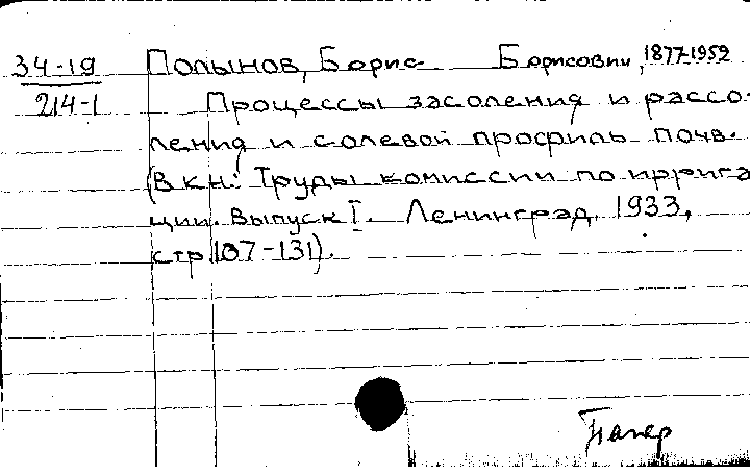 34-19 Полынов, Борис Борисович, 1877-1952
214-1 Процессы засоления и рассо-
ления и солевой профиль почв.
(В кн.: Труды комиссии по иррига
ции. Выпуск I. Ленинград, 1933,
стр. 107-131).